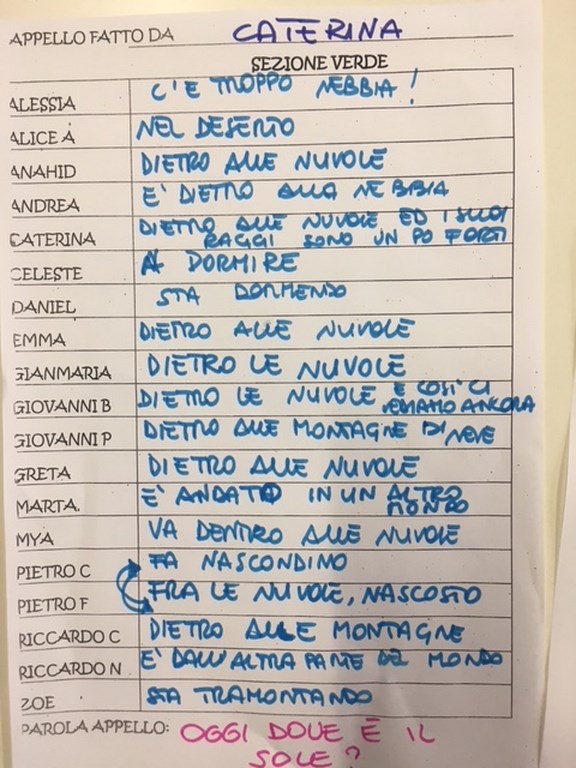 APPELLO FATTO DA CATERINA
SEZIONE VERDE
ALESSIA C'E TROPPO NEBBIA!
ALICE A NEL DESERTO
ANAHID DIETRO ALLE NUVOLE
ANDREA E' DIETRO ALLA NEBBIA
CATERINA DIETRO ALLE NUVOLE ED I SUOI
RAGGI SONO UN PO FORTI
CELESTE A DORMIRE
DANIEL STA DORMENDO
EMMA DIETRO ALLE NUVOLE
GIANMARIA DIETRO LE NUVOLE
GIOVANNI B DIETRO LE NUVOLE E COSI' CI
VEDIAMO ANCORA
GIOVANNI P DIETRO ALLE MONTAGNE DI NEVE
GRETA DIETRO ALLE NUVOLE
MARTA. E' ANDATO IN UN ALTRO
MONDO
MYA VA DENTRO ALLE NUVOLE
PIETRO C FA NASCONDINO
PIETRO F FRA LE NUVOLE, NASCOSTO
RICCARDO C DIETRO ALLE MONTAGNE
RICCARDO N E' DALL'ALTRA PARTE DEL MONDO
ZOE STA TRAMONTANDO
PAROLA APPELLO: OGGI DOVE È IL
SOLE?